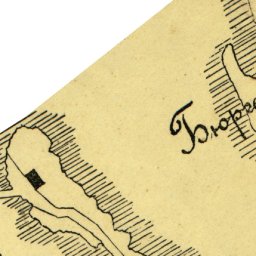 Бюрге